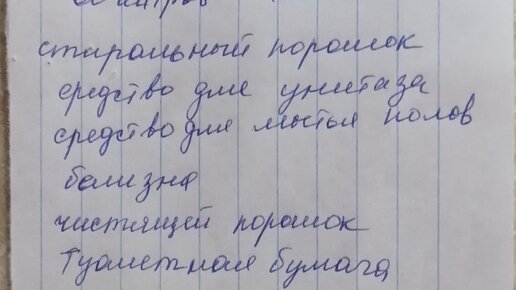 стиральный порошок
средство для унитаза
средство для мытья полов
белизна
чистящей порошок
Туалетная бумага